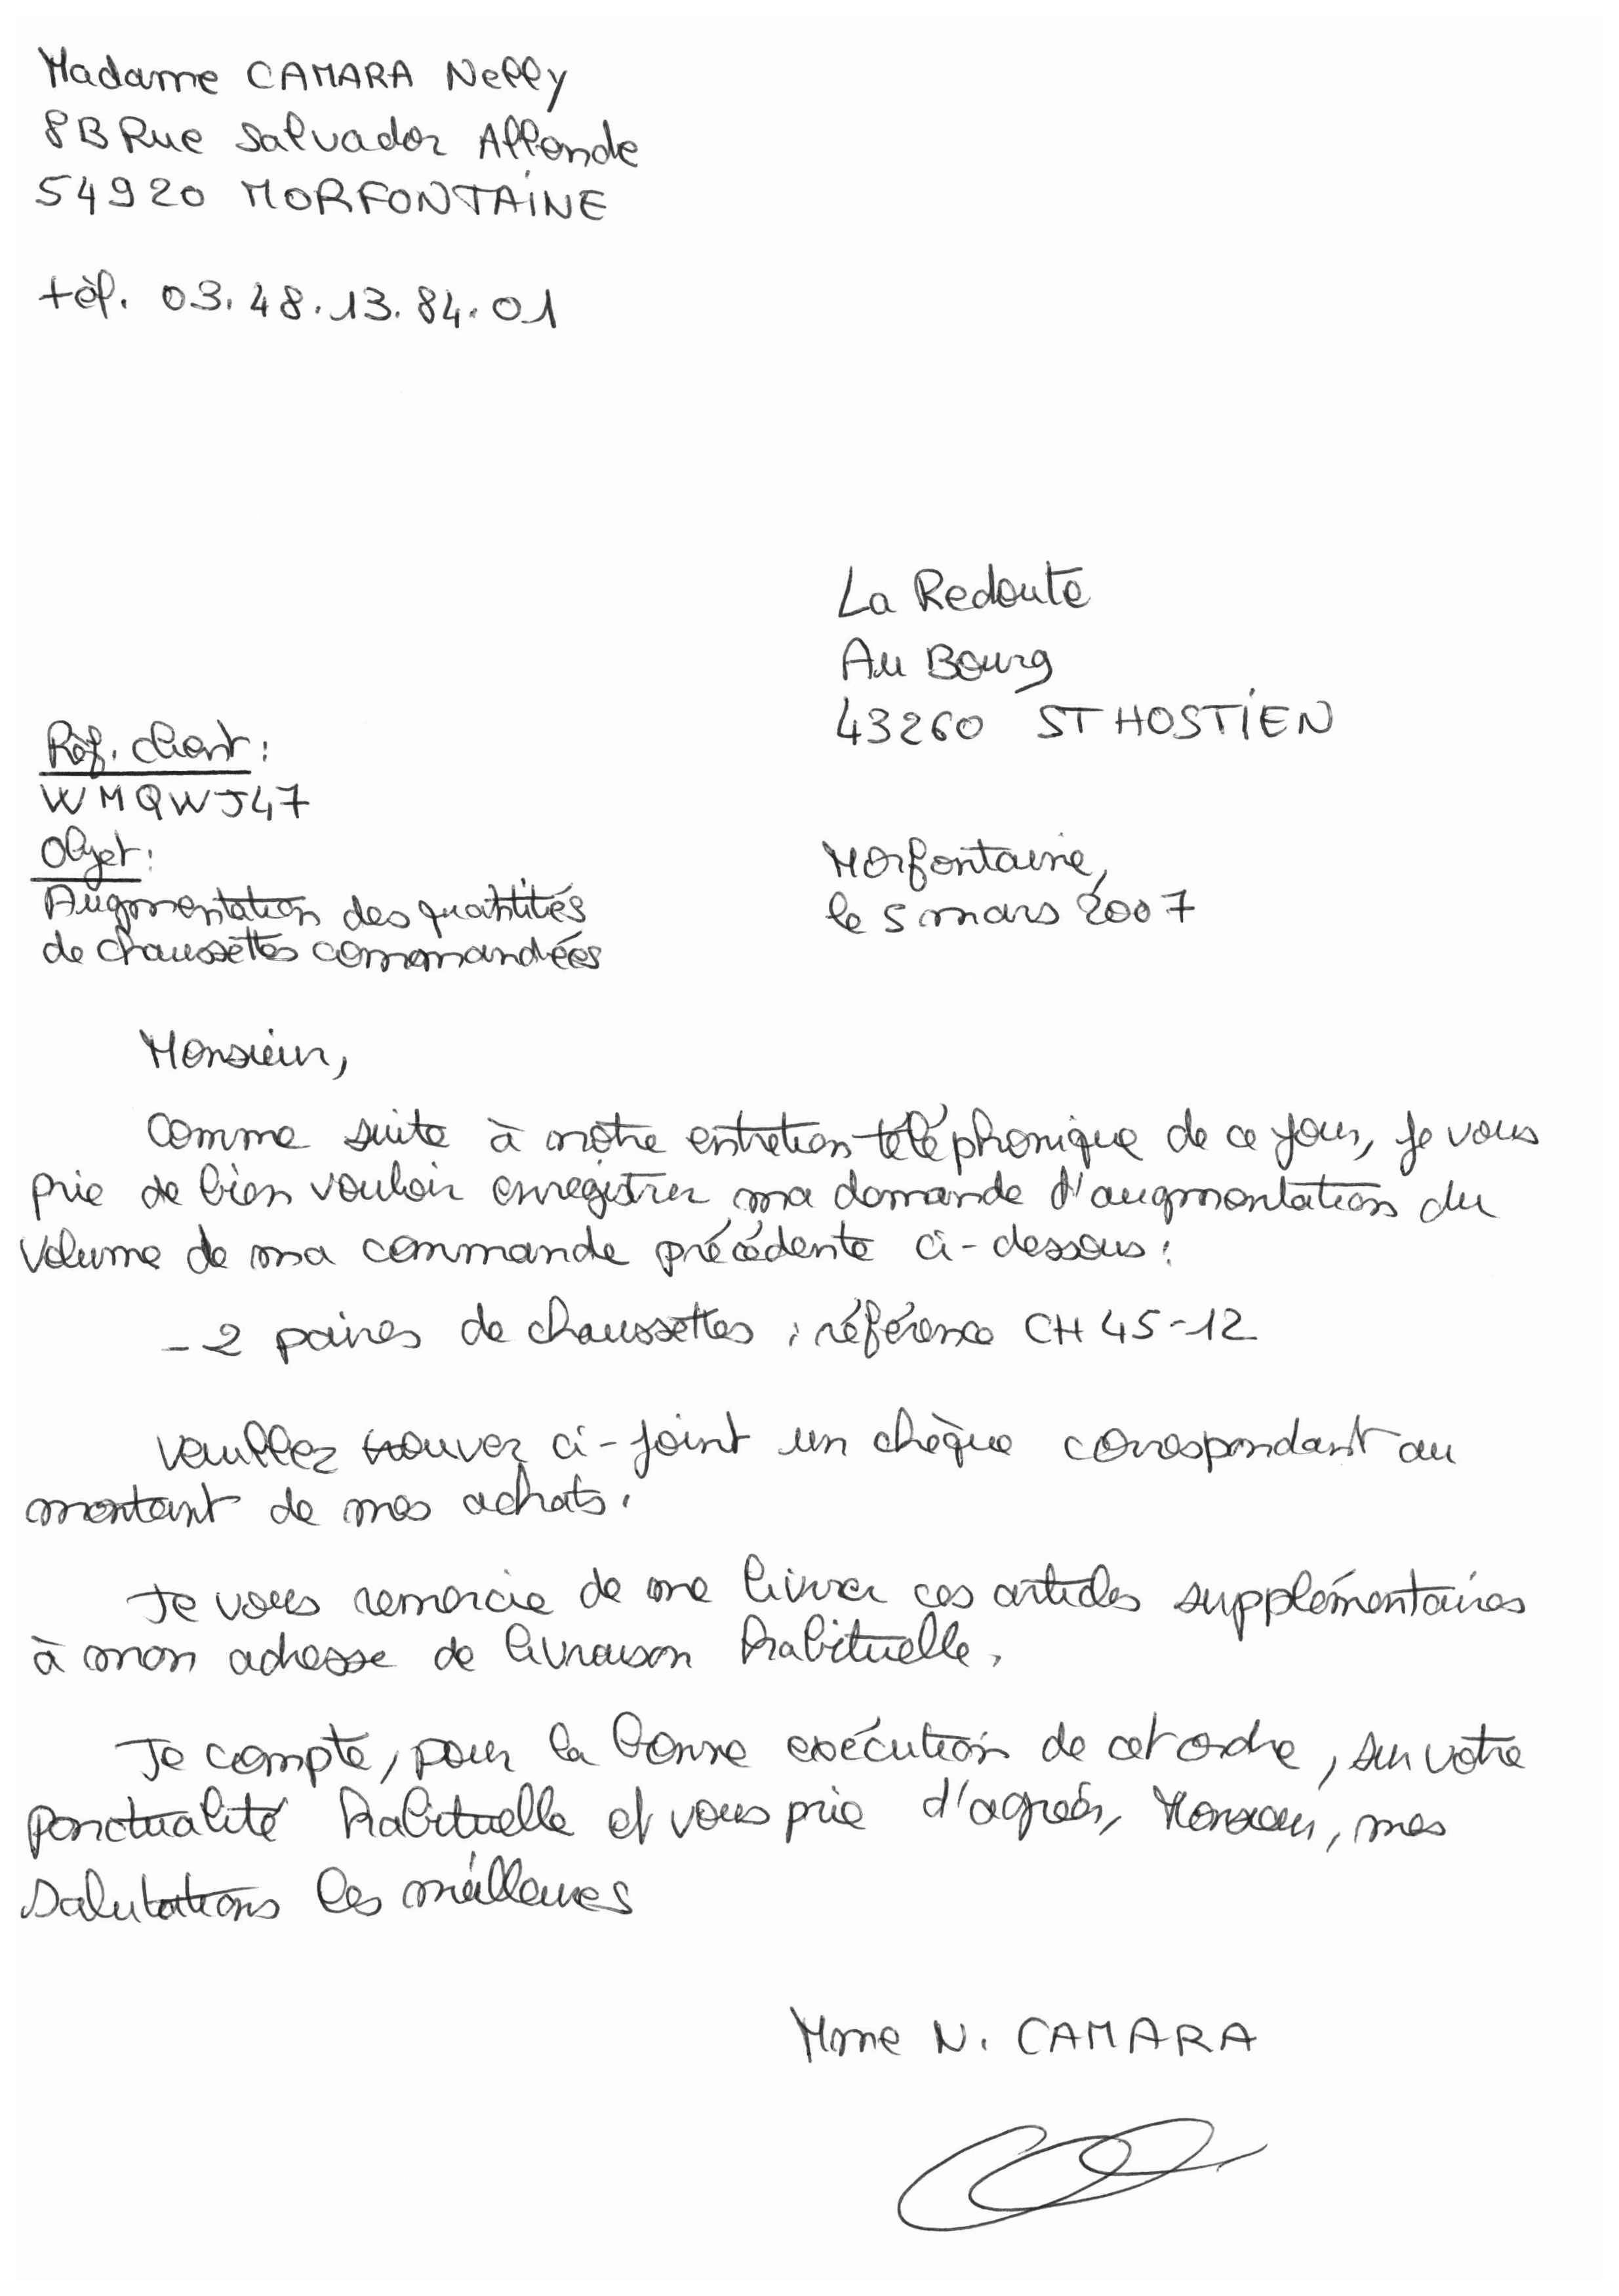 Madame CAMARA Nelly
8B Rue Salvador Allende
54920 MORFONTAINE
tél. 03.48.13.84.01
La Redoute
Au Bourg
43260 ST HOSTIEN
Réf. client :
WMQWJ47
Objet :
Augmentation des quantités
de chaussettes commandées
Morfontaine,
le 5 mars 2007
Monsieur,
Comme suite à notre entretien téléphonique de ce jour, je vous
prie de bien vouloir enregistrer ma demande d'augmentation du
volume de ma commande précédente ci-dessous :
- 2 paires de chaussettes ; référence CH 45-12
Veuillez trouver ci-joint un chèque correspondant au
montant de mes achats.
Je vous remercie de me livrer ces articles supplémentaires
à mon adresse de livraison habituelle.
Je compte, pour la bonne exécution de cet ordre, sur votre
ponctualité habituelle et vous prie d'agréer, Monsieur, mes
salutations les meilleures
Mme N. CAMARA